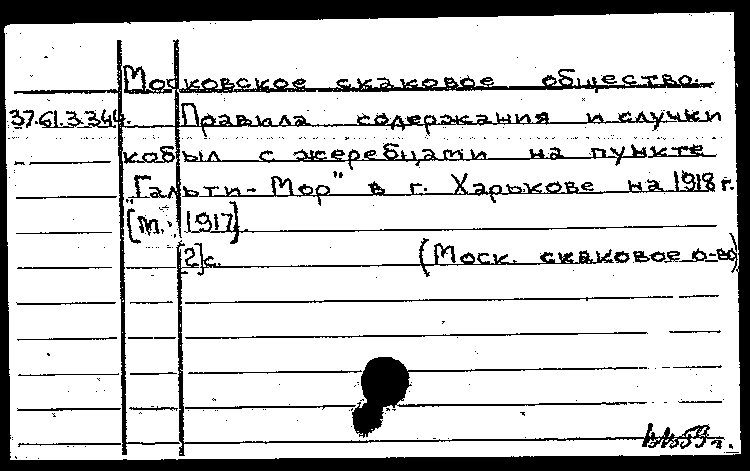 Московское скаковое общество.
37.61.3.344. Правила содержания и случки
кобыл с жеребцами на пункте
"Гальти-Мор" в г. Харькове на 1918 г.
[М., 1917].
[2]с. (Моск. скаковое о-во)
59 г.